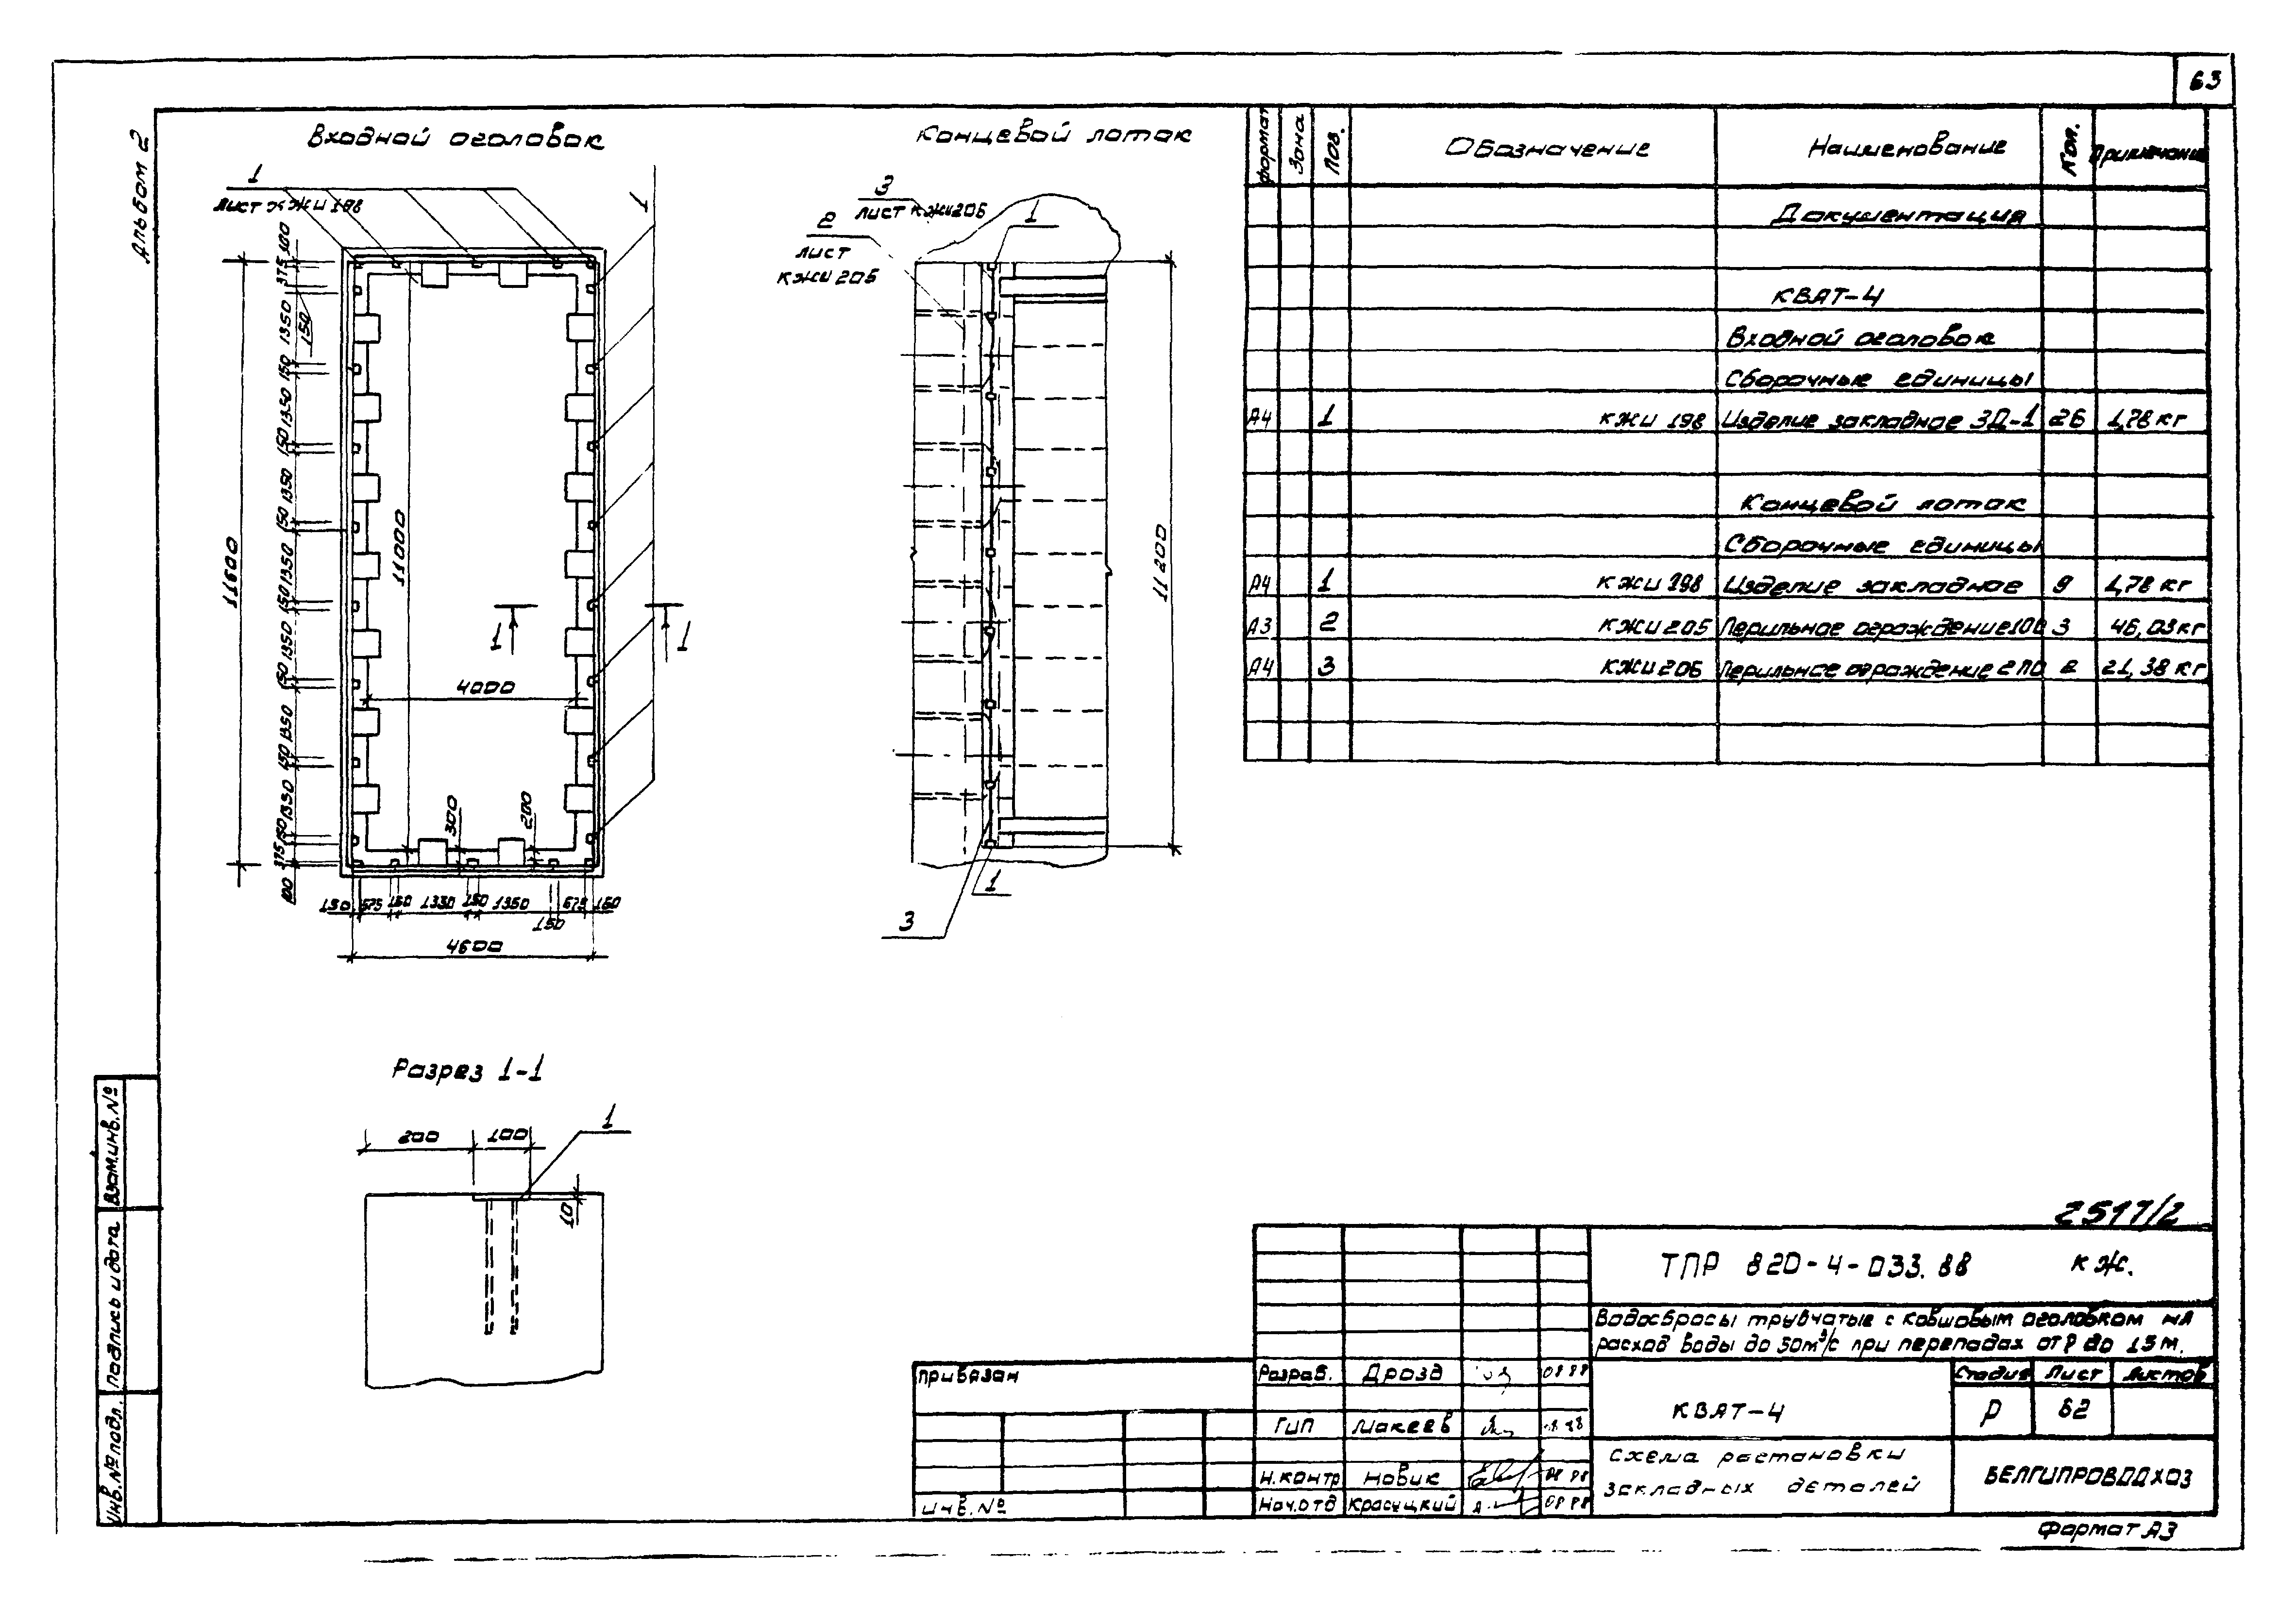 63
Альбом 2
Входной оголовок
1
лист КЖИ 198
1
100
375
1350
150
150
1350
150
1350
150
1350
150
1350
150
1350
150
1350
150
375
100
11600
11000
4000
1
1
300
200
150 675 150 1350 150 1350 675 150
150
4600
Концевой лоток
3
лист КЖИ206
2
лист
КЖИ 205
1
11200
1
3
Разрез 1-1
200
100
1
10
Формат
Зона
Поз.
Обозначение
Наименование
Кол.
Примечание
Документация
КВАТ-4
Входной оголовок
Сборочные единицы
А4 1 КЖИ 198 Изделие закладное ЗД-1 26 1,78 кг
Концевой лоток
Сборочные единицы
А4 1 КЖИ 198 Изделие закладное 9 1,78 кг
А3 2 КЖИ 205 Перильное ограждение 1ПО 3 46,03 кг
А4 3 КЖИ 206 Перильное ограждение 2ПО 2 21,38 кг
2517/2
ТПР 820-4-033.88 КЖ.
Водосбросы трубчатые с ковшовым оголовком на
расход воды до 50м³/с при перепадах от 2 до 15 м.
КВАТ-4
Стадия Лист Листов
Р 62
Схема растановки
закладных деталей
БЕЛГИПРОВОДХОЗ
Привязан
Инв.№
Разраб. Дрозд 08 88
ГИП Макеев
Н.контр Новик 08 88
Нач.отд Красуцкий 08 88
Взам.инв.№
Подпись и дата
Инв.№ подл.
Формат А3